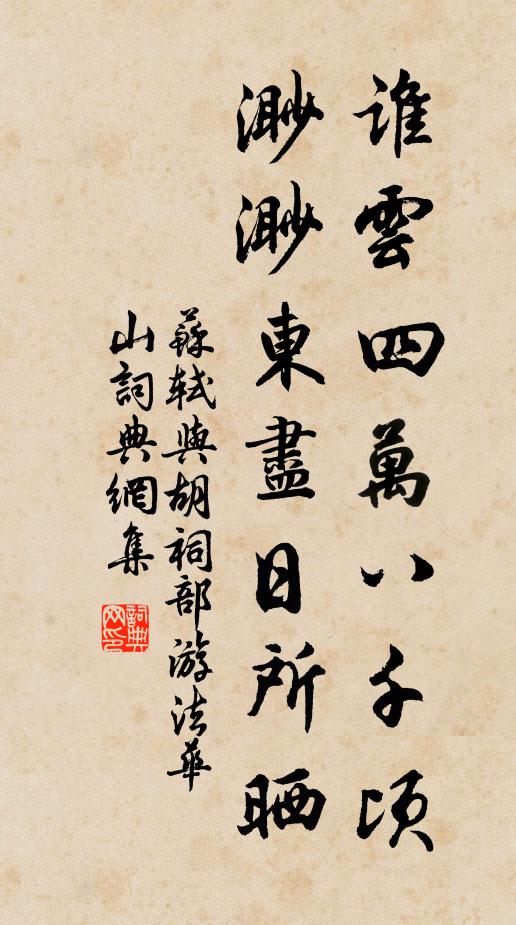 誰雲四萬八千頃
渺渺東盡日所晒
蘇軾與胡祠部游法華
山詞典網集
詞典
网印